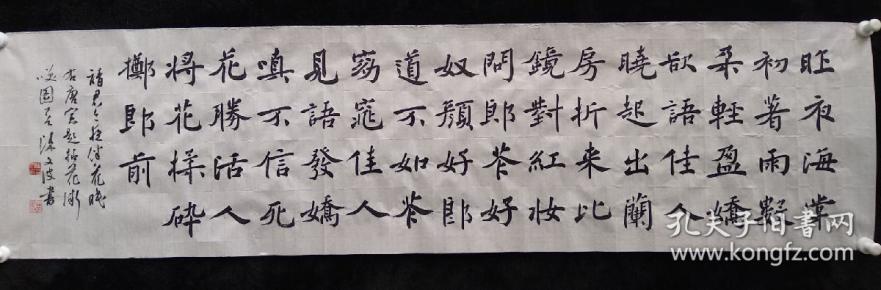 昨夜海棠
初著雨數
朵輕盈嬌
欲語佳人
曉起出蘭
房折來比
鏡對紅妝
問郎花好
奴顏好郎
道不如花
窈窕佳人
見語發嬌
嗔不信死
花勝活人
將花揉碎
擲郎前
右唐寅題拈花微
笑圖 陳文波書
孔夫子旧书网
www.kongfz.com